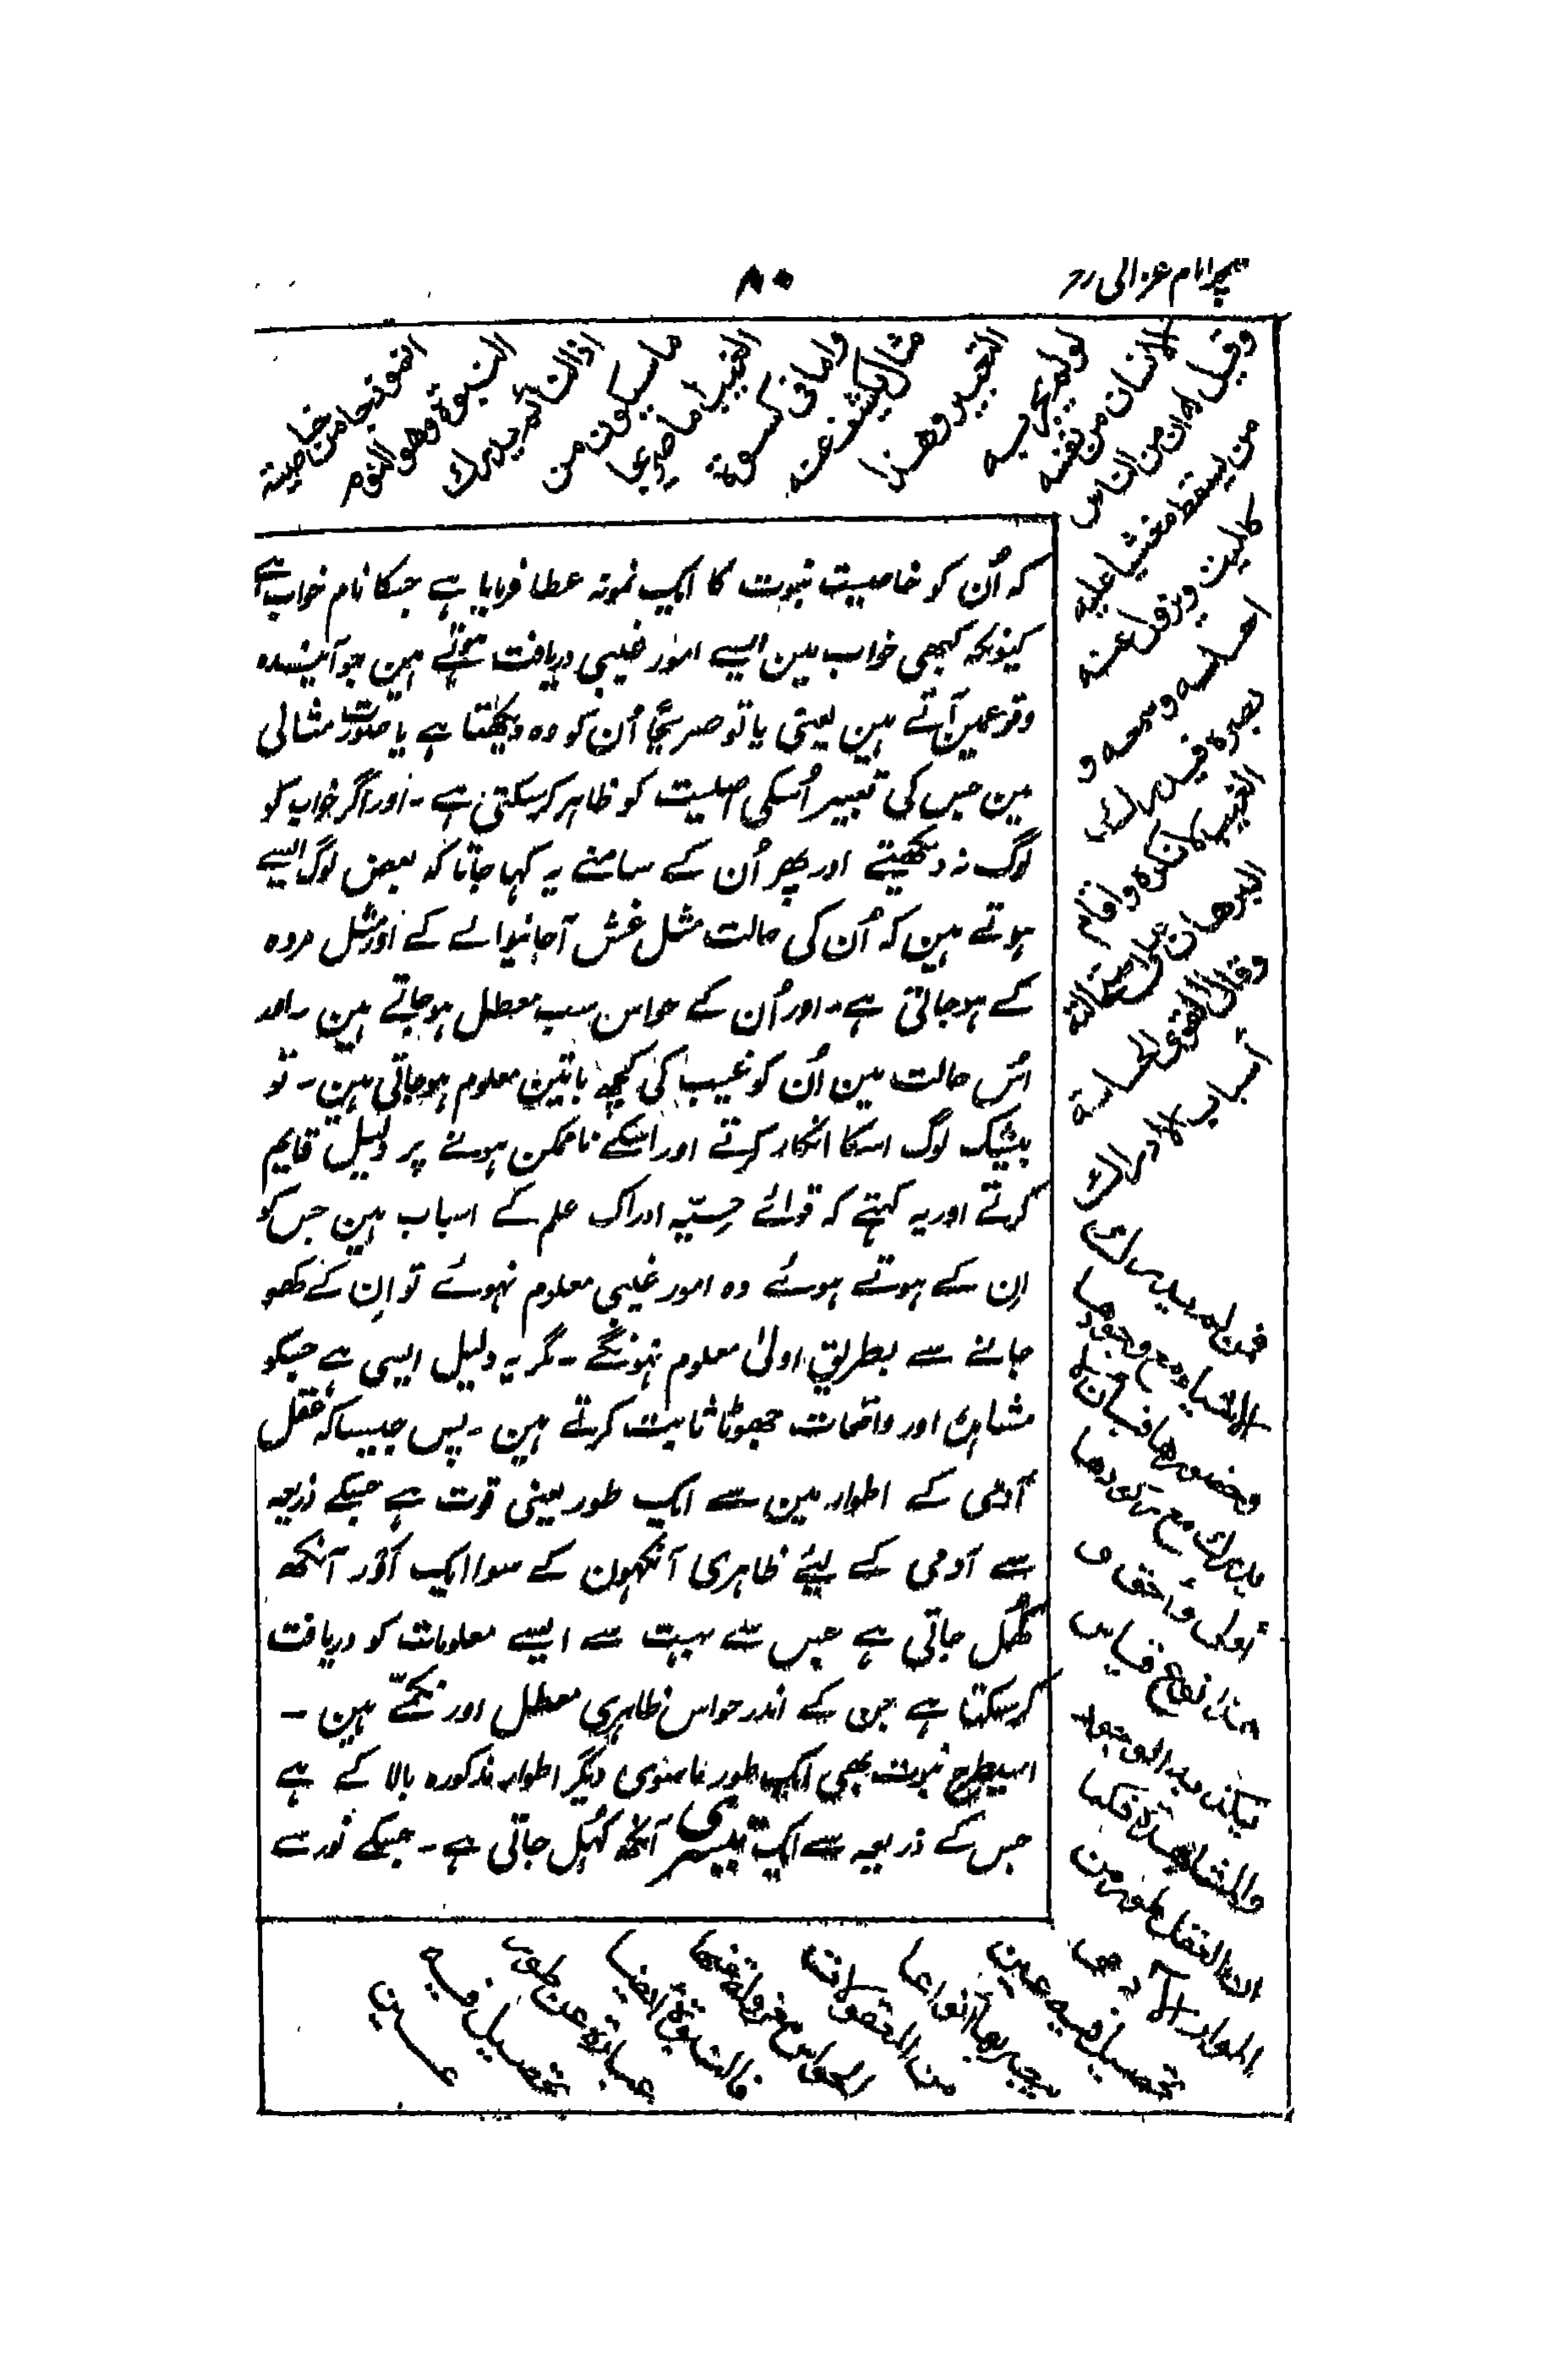 ۸۰
انموذجا من خاصية
النبوة وهو النوم
اذ النائم يدرك
ما سيكون من
الغيب اما صريحا
واما فى كسوة
مثال يكشف عنه
التعبير وهذا
لو لم يجربه
الانسان من نفسه
وقيل له ان من الناس
من يسقط مغشيا عليه
كالميت ويزول عنه
احساسه وسمعه و
بصره فيدرك
الغيب لانكره واقام
البرهان على استحالته
وقال القوى الحساسة
أسباب الادراك
فمن لم يدرك
الاشياء مع وجودها
وحضورها فبان لا
يدرك مع ركودها
أولى وأحق و
هذا نوع قياس
يكذبه الوجود
والمشاهدة فكما
ان العقل طور من
اطوار الآدمى
تحصل فيه عين
يبصر بها أنواعا
من المعقولات
الحواس معزولة عنها
فالنبوة ايضا
عبارة عن طور
تحصل فيه
عين
کہ اُن کو خاصیت نبوت کا ایک نمونہ عطا فرمایا ہے جسکا نام خواب ہے
کیونکہ کبھی خواب مین ایسے امور غیبی دریافت ہوتے ہین جو آیندہ
وقوعمین آتے ہین یعنی یا تو صریحًا اُن کو وہ دیکھتا ہے یا صورت مثالی
مین جس کی تعبیر اُسکی اصلیت کو ظاہر کرسکتی ہے ۔ اور اگر خواب کو
لوگ نہ دیکھتے اور پھر اُن کے سامنے یہ کہا جاتا کہ بعض لوگ ایسے
ہوتے ہین کہ اُن کی حالت مثل غش آجانیوالے کے اور مثل مردہ
کے ہوجاتی ہے ۔ اور اُن کے حواس سب معطل ہوجاتے ہین ۔ اور
اُس حالت مین اُن کو غیب کی کچھ باتین معلوم ہوجاتی ہین ۔ تو
بیشک لوگ اسکا انکار کرتے اور اسکے ناممکن ہونے پر دلیل قایم
کرتے اور یہ کہتے کہ قوائے حسیّہ ادراک علم کے اسباب ہین جس کو
اِن کے ہوتے ہوئے وہ امور غیبی معلوم نہوئے تو اِن کے کھو
جانے سے بطریق اولیٰ معلوم نہونگے ۔ مگر یہ دلیل ایسی ہے جسکو
مشاہدہ اور واقعات جھوٹا ثابت کرتے ہین ۔ پس جیسا کہ عقل
آدمی کے اطوار مین سے ایک طور یعنی قوت ہے جسکے ذریعہ
سے آدمی کے لیئے ظاہری آنکھون کے سوا ایک اَور آنکھ
کُھل جاتی ہے جس سے بہت سے ایسے معلومات کو دریافت
کرسکتا ہے جن کے اندر حواس ظاہری معطل اور نکمّے ہین ۔
اسیطرح نبوت بھی ایک طور ماسوی دیگر اطوار مذکورہ بالا کے ہے
جس کے ذریعہ سے ایک تیسری آنکھ کُھل جاتی ہے ۔ جسکے نور سے